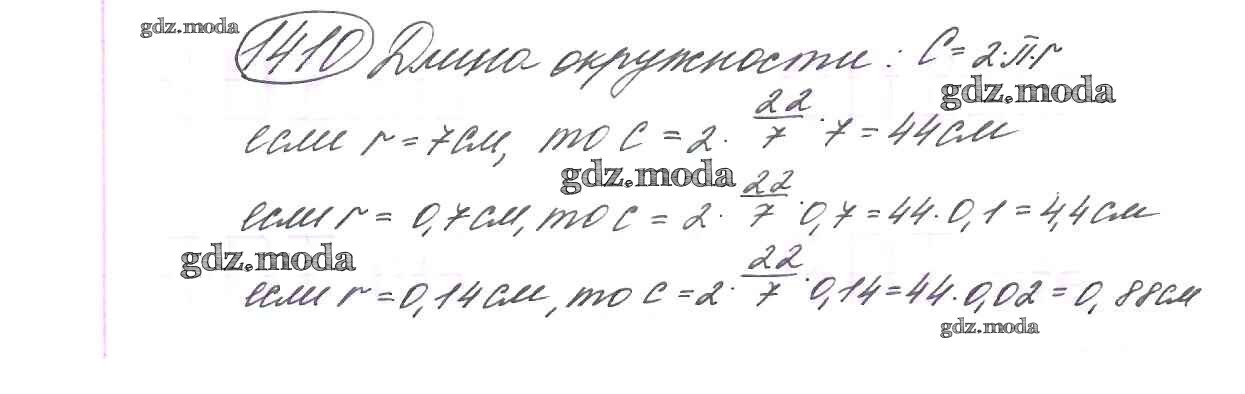 gdz.moda
1410 Длина окружности: C = 2·π·r
gdz.moda
если r = 7см, то C = 2 · 22/7 · 7 = 44см
gdz.moda
если r = 0,7см, то C = 2 · 22/7 · 0,7 = 44 · 0,1 = 4,4см
gdz.moda
если r = 0,14см, то C = 2 · 22/7 · 0,14 = 44 · 0,02 = 0,88см
gdz.moda